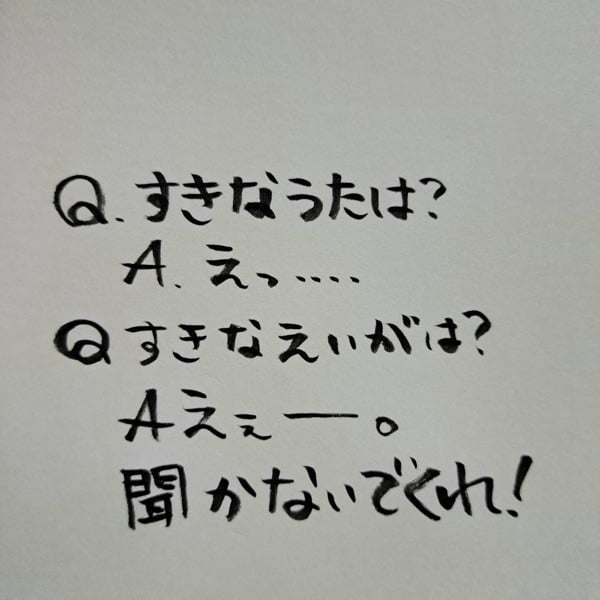 Q.すきなうたは?
A.えっ‥‥
Qすきなえいがは?
Aえぇー。
聞かないでくれ!